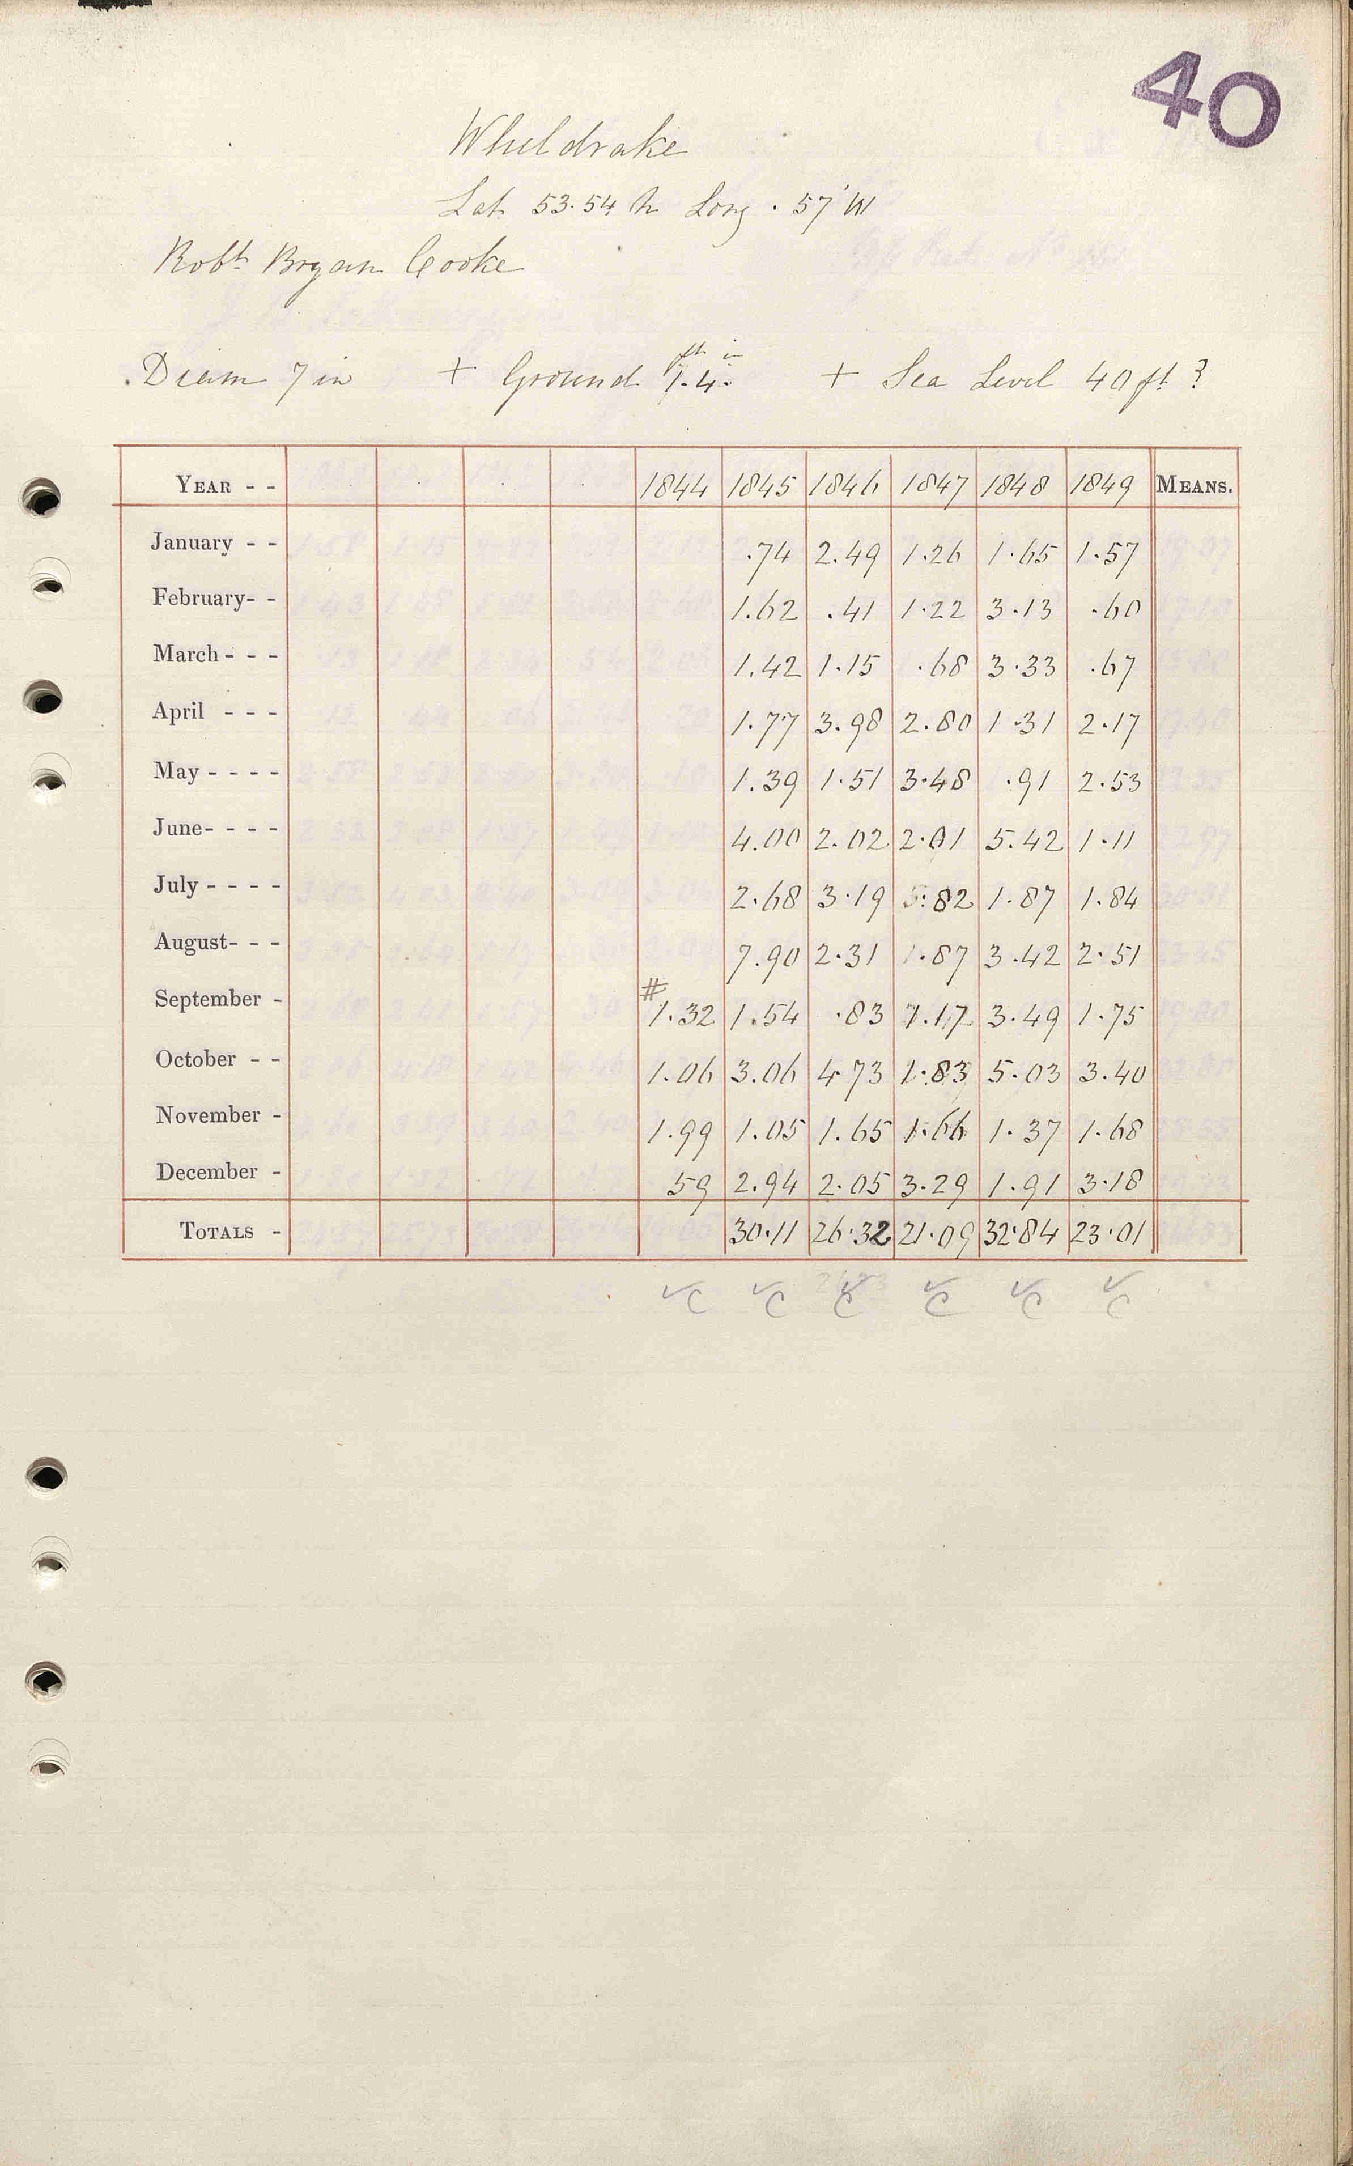 40
Wheldrake
Lat 53.54 N Long . 57' W
Robt Bryan Cooke
Diam 7 in + Ground 1 ft. 4 in. + Sea Level 40 ft ?
YEAR - - 1844 1845 1846 1847 1848 1849 MEANS.
January - - .74 2.49 1.26 1.65 1.57
February - - 1.62 .41 1.22 3.13 .60
March - - - 1.42 1.15 .68 3.33 .67
April - - - 1.77 3.98 2.80 1.31 2.17
May - - - - 1.39 1.51 3.48 .91 2.53
June - - - - 4.00 2.02 2.01 5.42 1.11
July - - - - 2.68 3.19 .82 1.87 1.84
August - - - 7.90 2.31 1.87 3.42 2.51
September - # 1.32 1.54 .83 1.17 3.49 1.75
October - - 1.06 3.06 4.73 1.83 5.03 3.40
November - 1.99 1.05 1.65 1.66 1.37 1.68
December - 59 2.94 2.05 3.29 1.91 3.18
TOTALS - 30.11 26.32 21.09 32.84 23.01
✓C ✓C ✓C ✓C ✓C ✓C